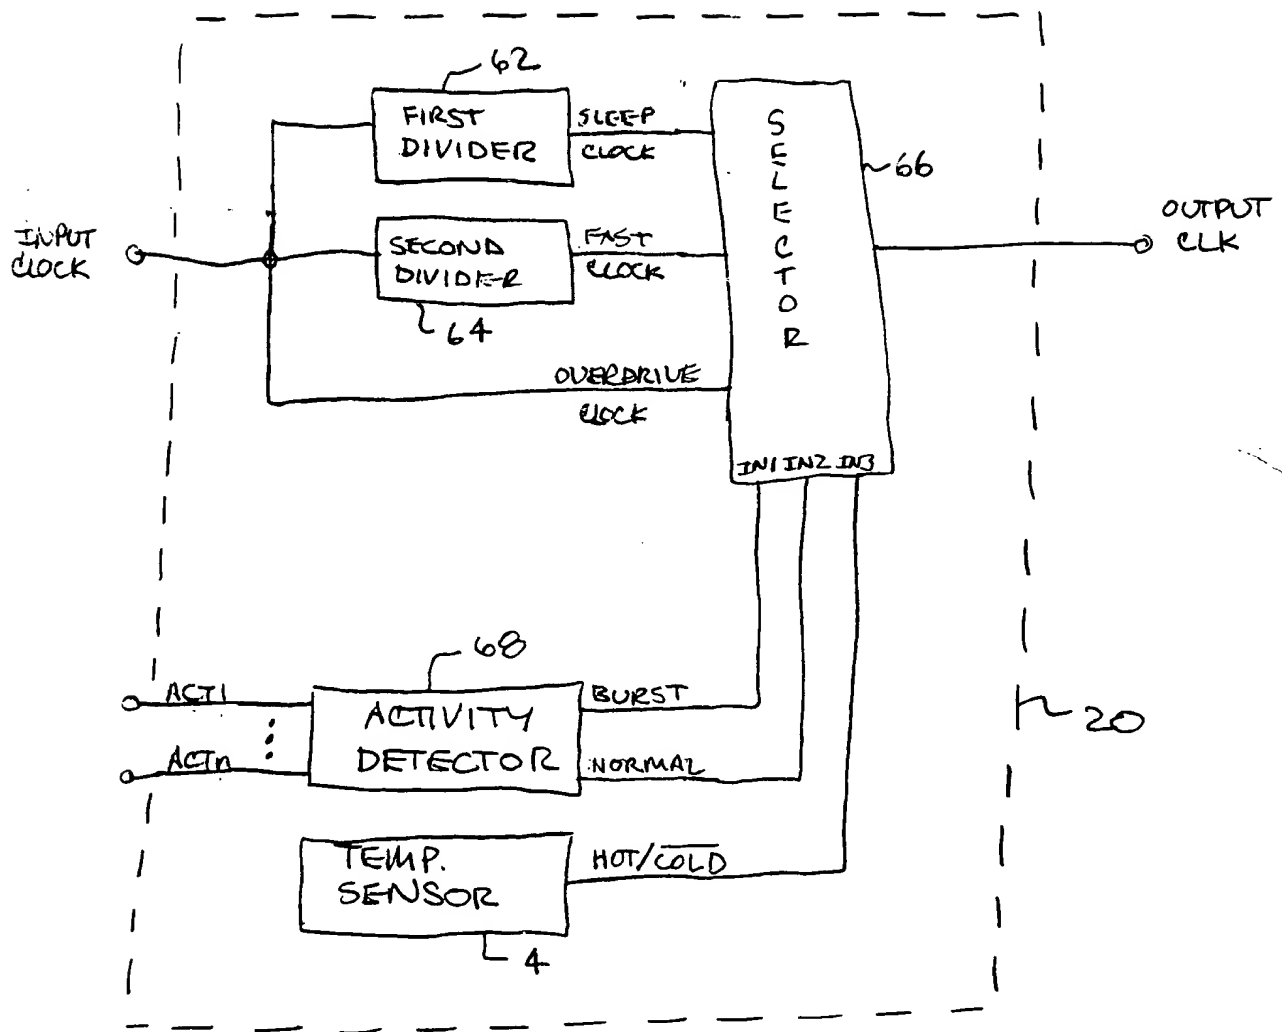 62
FIRST
DIVIDER
SLEEP
CLOCK
SELECTOR
66
INPUT
CLOCK
SECOND
DIVIDER
FAST
CLOCK
OUTPUT
CLK
64
OVERDRIVE
CLOCK
IN1 IN2 IN3
68
ACT1
ACTn
ACTIVITY
DETECTOR
BURST
NORMAL
20
TEMP.
SENSOR
HOT/COLD
4